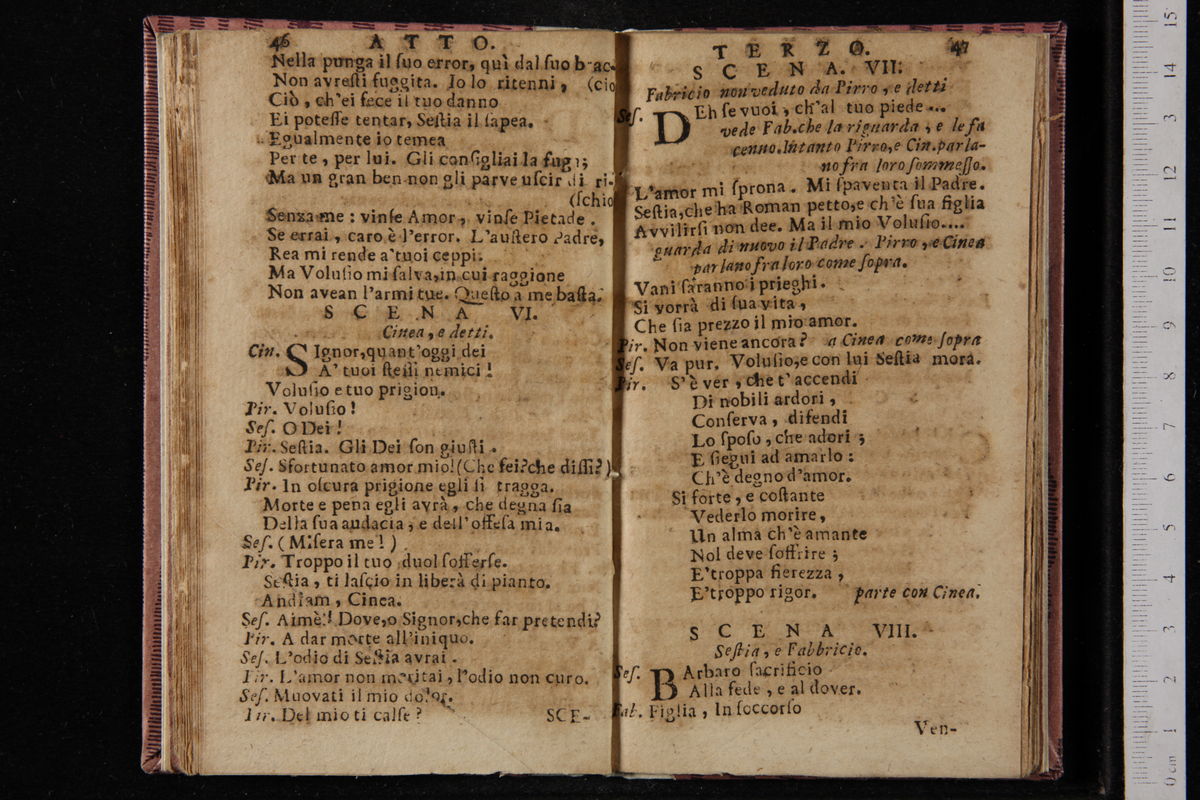 46 ATTO.
Nella punga il ſuo error, quì dal ſuo brac-
(cio
Non avreſti fuggita. Io lo ritenni,
Ciò, ch'ei fece il tuo danno
Ei poteſſe tentar, Seſtia il ſapea.
Egualmente io temea
Per te, per lui. Gli conſigliai la fuga;
Ma un gran ben non gli parve uſcir di ri-
(ſchio
Senza me: vinſe Amor, vinſe Pietade.
Se errai, caro è l'error. L'auſtero Padre,
Rea mi rende a' tuoi ceppi.
Ma Voluſio mi ſalva, in cui raggione
Non avean l'armi tue. Queſto a me baſta.
SCENA VI.
Cinea, e detti.
Cin. SIgnor, quant'oggi dei
A' tuoi ſteſſi nemici!
Voluſio e tuo prigion.
Pir. Voluſio!
Seſ. O Dei!
Pir. Seſtia. Gli Dei ſon giuſti.
Seſ. Sfortunato amor mio! (Che fei? che diſſi?)
Pir. In oſcura prigione egli ſi tragga.
Morte e pena egli avrà, che degna ſia
Della ſua audacia, e dell'offeſa mia.
Seſ. (Miſera me!)
Pir. Troppo il tuo duol ſofferſe.
Seſtia, ti laſcio in liberà di pianto.
Andiam, Cinea.
Seſ. Aimè! Dove, o Signor, che far pretendi?
Pir. A dar morte all'iniquo.
Seſ. L'odio di Seſtia avrai.
Pir. L'amor non meritai, l'odio non curo.
Seſ. Muovati il mio dolor.
Pir. Del mio ti calſe?
SCE-
TERZO. 47
SCENA. VII.
Fabricio non veduto da Pirro, e detti
Seſ. DEh ſe vuoi, ch'al tuo piede...
vede Fab. che la riguarda, e le fa
cenno. Intanto Pirro, e Cin. parla-
no fra loro ſommeſſo.
L'amor mi ſprona. Mi ſpaventa il Padre.
Seſtia, che ha Roman petto, e ch'è ſua figlia
Avvilirſi non dee. Ma il mio Voluſio....
guarda di nuovo il Padre. Pirro, e Cinea
parlano fra loro come ſopra.
Vani ſaranno i prieghi.
Si vorrà di ſua vita,
Che ſia prezzo il mio amor.
Pir. Non viene ancora? a Cinea come ſopra
Seſ. Va pur. Voluſio, e con lui Seſtia mora.
Pir. S'è ver, che t'accendi
Di nobili ardori,
Conſerva, difendi
Lo ſpoſo, che adori;
E ſiegui ad amarlo:
Ch'è degno d'amor.
Si forte, e coſtante
Vederlo morire,
Un alma ch'è amante
Nol deve ſoffrire;
E' troppa fierezza,
E' troppo rigor. parte con Cinea.
SCENA VIII.
Seſtia, e Fabbricio.
Seſ. BArbaro ſacrificio
Alla fede, e al dover.
Fab. Figlia, In ſoccorſo
Ven-
0 cm 1 2 3 4 5 6 7 8 9 10 11 12 13 14 15